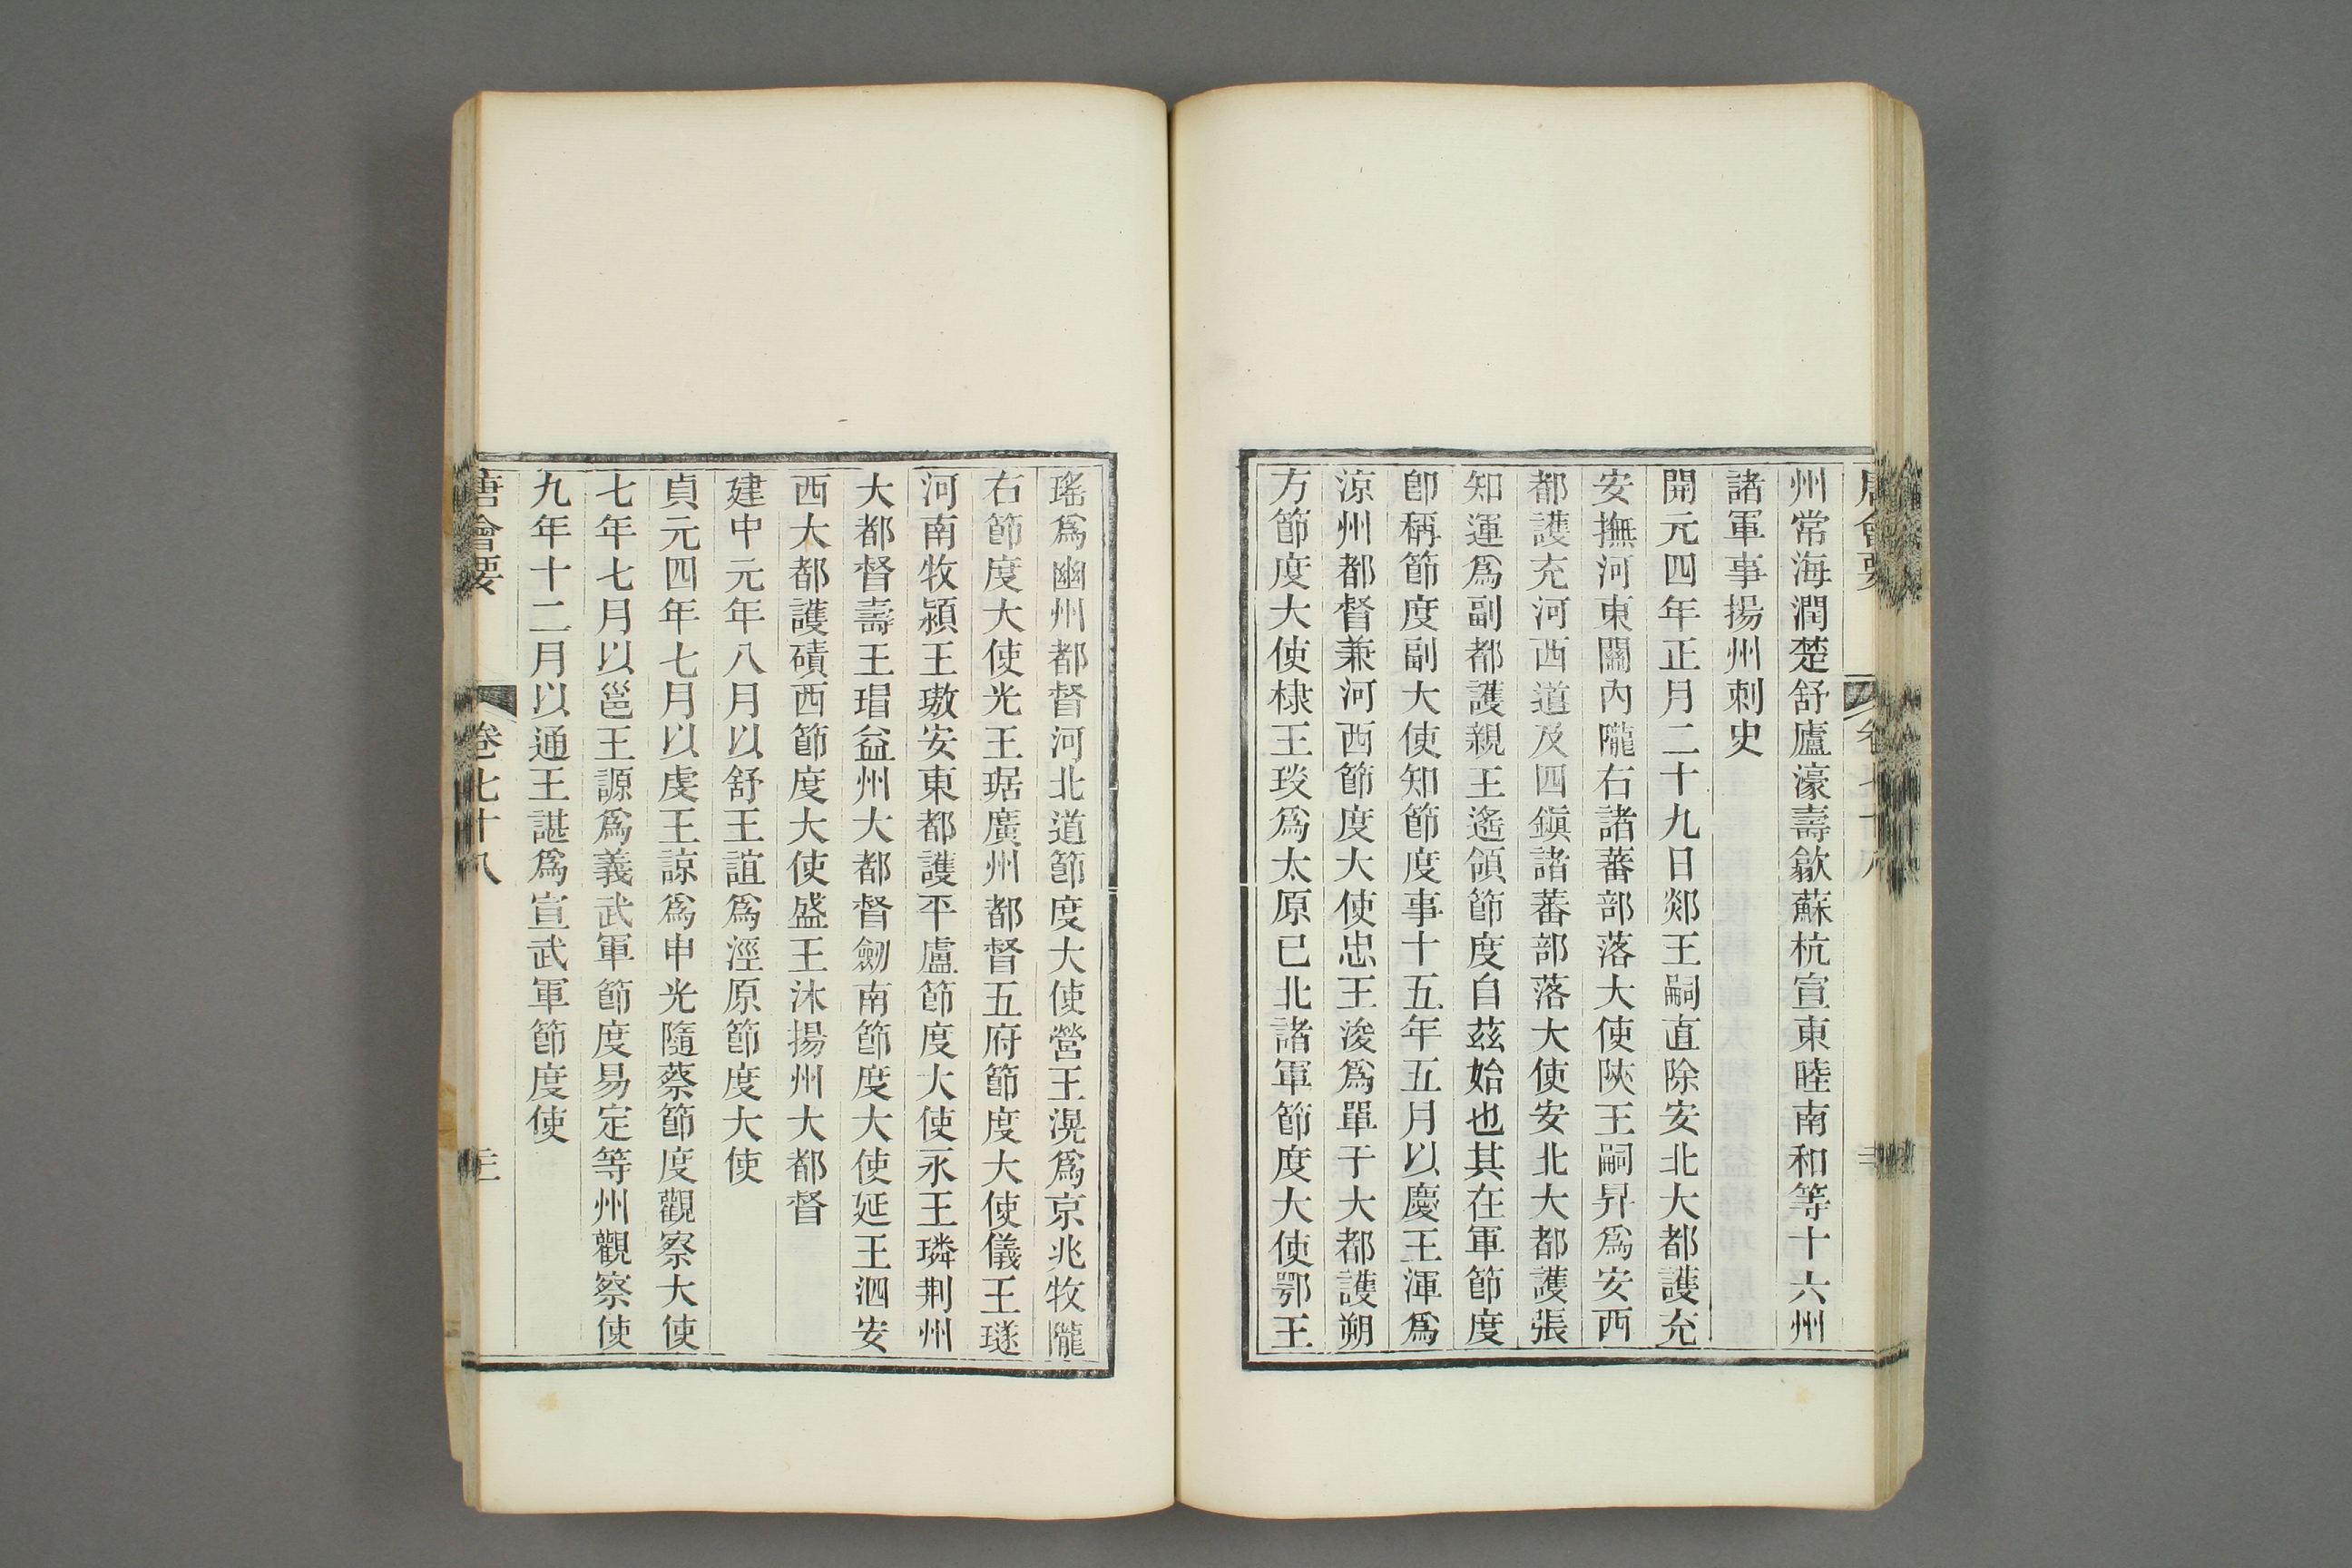 唐會要 卷七十八
州常海潤楚舒廬濠壽歙蘇杭宣東睦南和等十六州
諸軍事揚州刺史
開元四年正月二十九日郯王嗣直除安北大都護充
安撫河東關內隴右諸蕃部落大使陝王嗣昇爲安西
都護充河西道及四鎭諸蕃部落大使安北大都護張
知運爲副都護親王遙領節度自茲始也其在軍節度
卽稱節度副大使知節度事十五年五月以慶王渾爲
涼州都督兼河西節度大使忠王浚爲單于大都護朔
方節度大使棣王琰爲太原已北諸軍節度大使鄂王
瑤爲幽州都督河北道節度大使營王滉爲京兆牧隴
右節度大使光王琚廣州都督五府節度大使儀王璲
河南牧潁王璬安東都護平盧節度大使永王璘荆州
大都督壽王瑁益州大都督劒南節度大使延王泗安
西大都護磧西節度大使盛王沐揚州大都督
建中元年八月以舒王誼爲涇原節度大使
貞元四年七月以虔王諒爲申光隨蔡節度觀察大使
七年七月以邕王謜爲義武軍節度易定等州觀察使
九年十二月以通王諶爲宣武軍節度使
唐會要 卷七十八